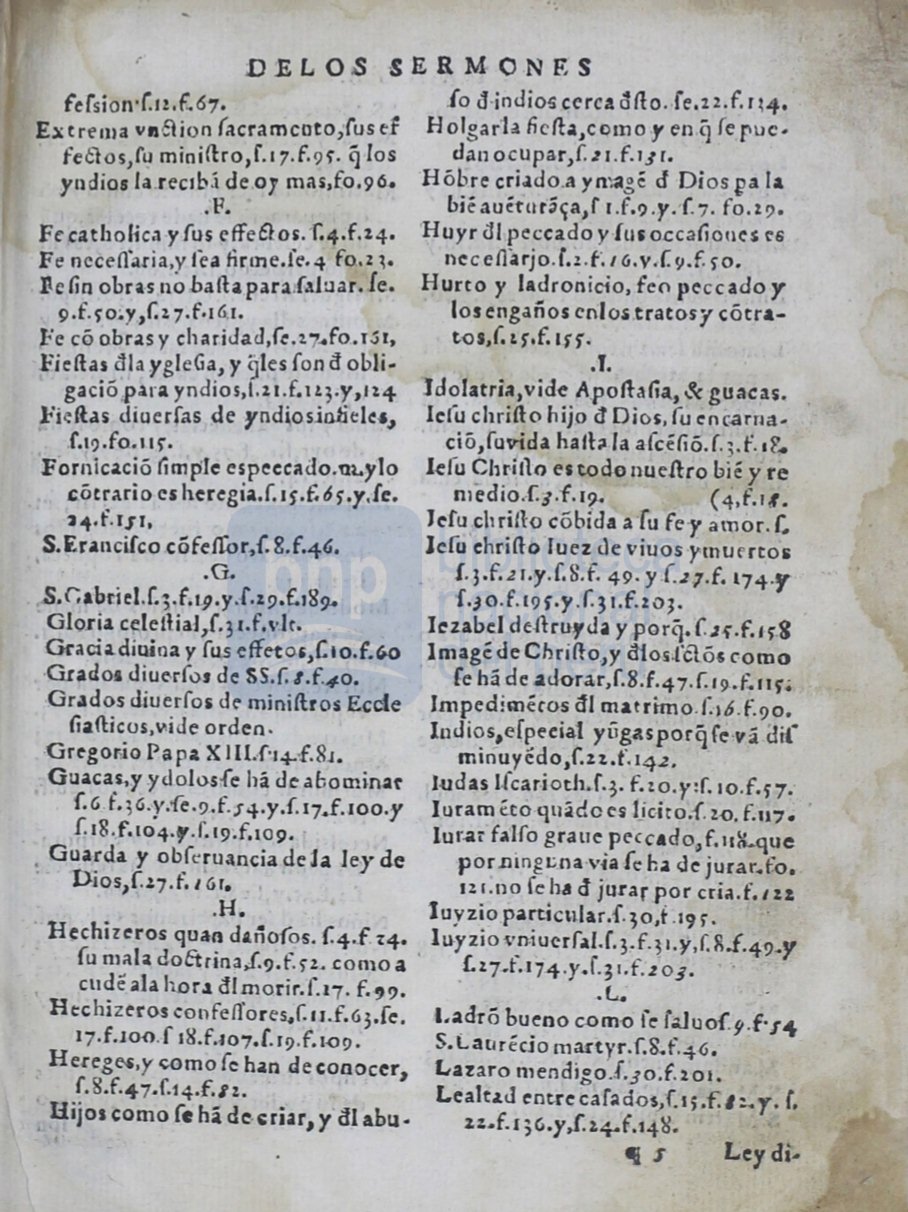 DELOS SERMONES
feſsion·ſ.12.f.67.
Extrema vnction ſacramento, ſus ef
fectos, ſu miniſtro, ſ.17.f.95. q̃ los
yndios la recibã de oy mas, fo.96.
.F.
Fe catholica y ſus effectos. ſ.4.f.24.
Fe neceſſaria, y ſea firme. ſe.4 fo.23.
Fe ſin obras no baſta para ſaluar. ſe.
9.f.50.y, ſ.27.f.161.
Fe cõ obras y charidad, ſe.27.fo.161,
Fieſtas đla ygleſia, y q̃les ſon đ obli-
gaciõ para yndios, ſ.21.f.123.y, 124
Fieſtas diuerſas de yndios infieles,
ſ.19.fo.115.
Fornicaciõ ſimple es peccado.m.y lo
cõtrario es heregia. ſ.15.f.65.y. ſe.
24.f.151,
S. Franciſco cõfeſſor, ſ.8.f.46.
.G.
S. Gabriel. ſ.3.f.19.y. ſ.29.f.189.
Gloria celeſtial, ſ.31.f.vlt.
Gracia diuina y ſus effetos, ſ.10.f.60
Grados diuerſos de SS. ſ.8.f.40.
Grados diuerſos de miniſtros Eccle
ſiaſticos, vide orden.
Gregorio Papa XIII. ſ.14.f.81.
Guacas, y ydolos ſe hã de abominar
ſ.6 f.36.y. ſe.9.f.54.y. ſ.17.f.100.y
ſ.18.f.104.y. ſ.19.f.109.
Guarda y obſeruancia de la ley de
Dios, ſ.27.f.161.
.H.
Hechizeros quan dañoſos. ſ.4.f 24.
ſu mala doctrina, ſ.9.f.52. como a
cudẽ ala hora đl morir. ſ.17. f.99.
Hechizeros confeſſores, ſ.11.f.63. ſe.
17.f.100. ſ 18.f.107. ſ.19.f.109.
Hereges, y como ſe han de conocer,
ſ.8.f.47. ſ.14.f.82.
Hijos como ſe hã de criar, y đl abu-
ſo đ indios cerca đſto. ſe.22.f.134.
Holgar la fieſta, como y en q̃ ſe pue-
dan ocupar, ſ.21.f.131.
Hõbre criado a ymagẽ đ Dios pa la
biẽ auẽturãça, ſ 1.f.9.y. ſ.7. fo.29.
Huyr đl peccado y ſus occaſiones es
neceſſarjo. ſ.2.f.16.y. ſ.9.f.50.
Hurto y ladronicio, feo peccado y
los engaños en los tratos y cõtra-
tos, ſ.25.f.155.
.I.
Idolatria, vide Apoſtaſia, & guacas.
Ieſu chriſto hijo đ Dios, ſu encarna-
ciõ, ſu vida haſta la aſcẽſiõ. ſ.3.f.18.
Ieſu Chriſto es todo nueſtro biẽ y re
medio. ſ.3.f.19. (4,f.18.
Jeſu chriſto cõbida a ſu fe y amor. ſ.
Ieſu chriſto Iuez de viuos y muertos
ſ.3.f.21.y. ſ.8.f. 49. y ſ.27.f. 174.y
ſ.30.f.195.y. ſ.31.f.203.
Iezabel deſtruyda y porq̃. ſ.25.f.158
Imagẽ de Chriſto, y đlos ſctõs como
ſe hã de adorar, ſ.8.f.47. ſ.19.f.115.
Impedimẽtos đl matrimo. ſ.16.f.90.
Indios, eſpecial yũgas porq̃ ſe vã diſ
minuyẽdo, ſ.22.f.142.
Iudas Iſcarioth. ſ.3. f.20.y: ſ.10.f.57.
Iuramẽto quãdo es licito. ſ.20.f.117.
Iurar falſo graue peccado, f.118. que
por ninguna via ſe ha de jurar. fo.
121. no ſe ha đ jurar por cria. f.122
Iuyzio particular. ſ.30, f.195.
Iuyzio vniuerſal. ſ.3.f.31.y, ſ.8.f.49.y
ſ.27.f.174.y. ſ.31.f.203.
.L.
Ladrõ bueno como ſe ſaluo ſ.9.f.54
S. Laurẽcio martyr. ſ.8.f.46.
Lazaro mendigo. ſ.30.f.201.
Lealtad entre caſados, ſ.15.f.82.y. ſ.
22.f.136.y, ſ.24.f.148.
¶ 5 Ley di-
bnp